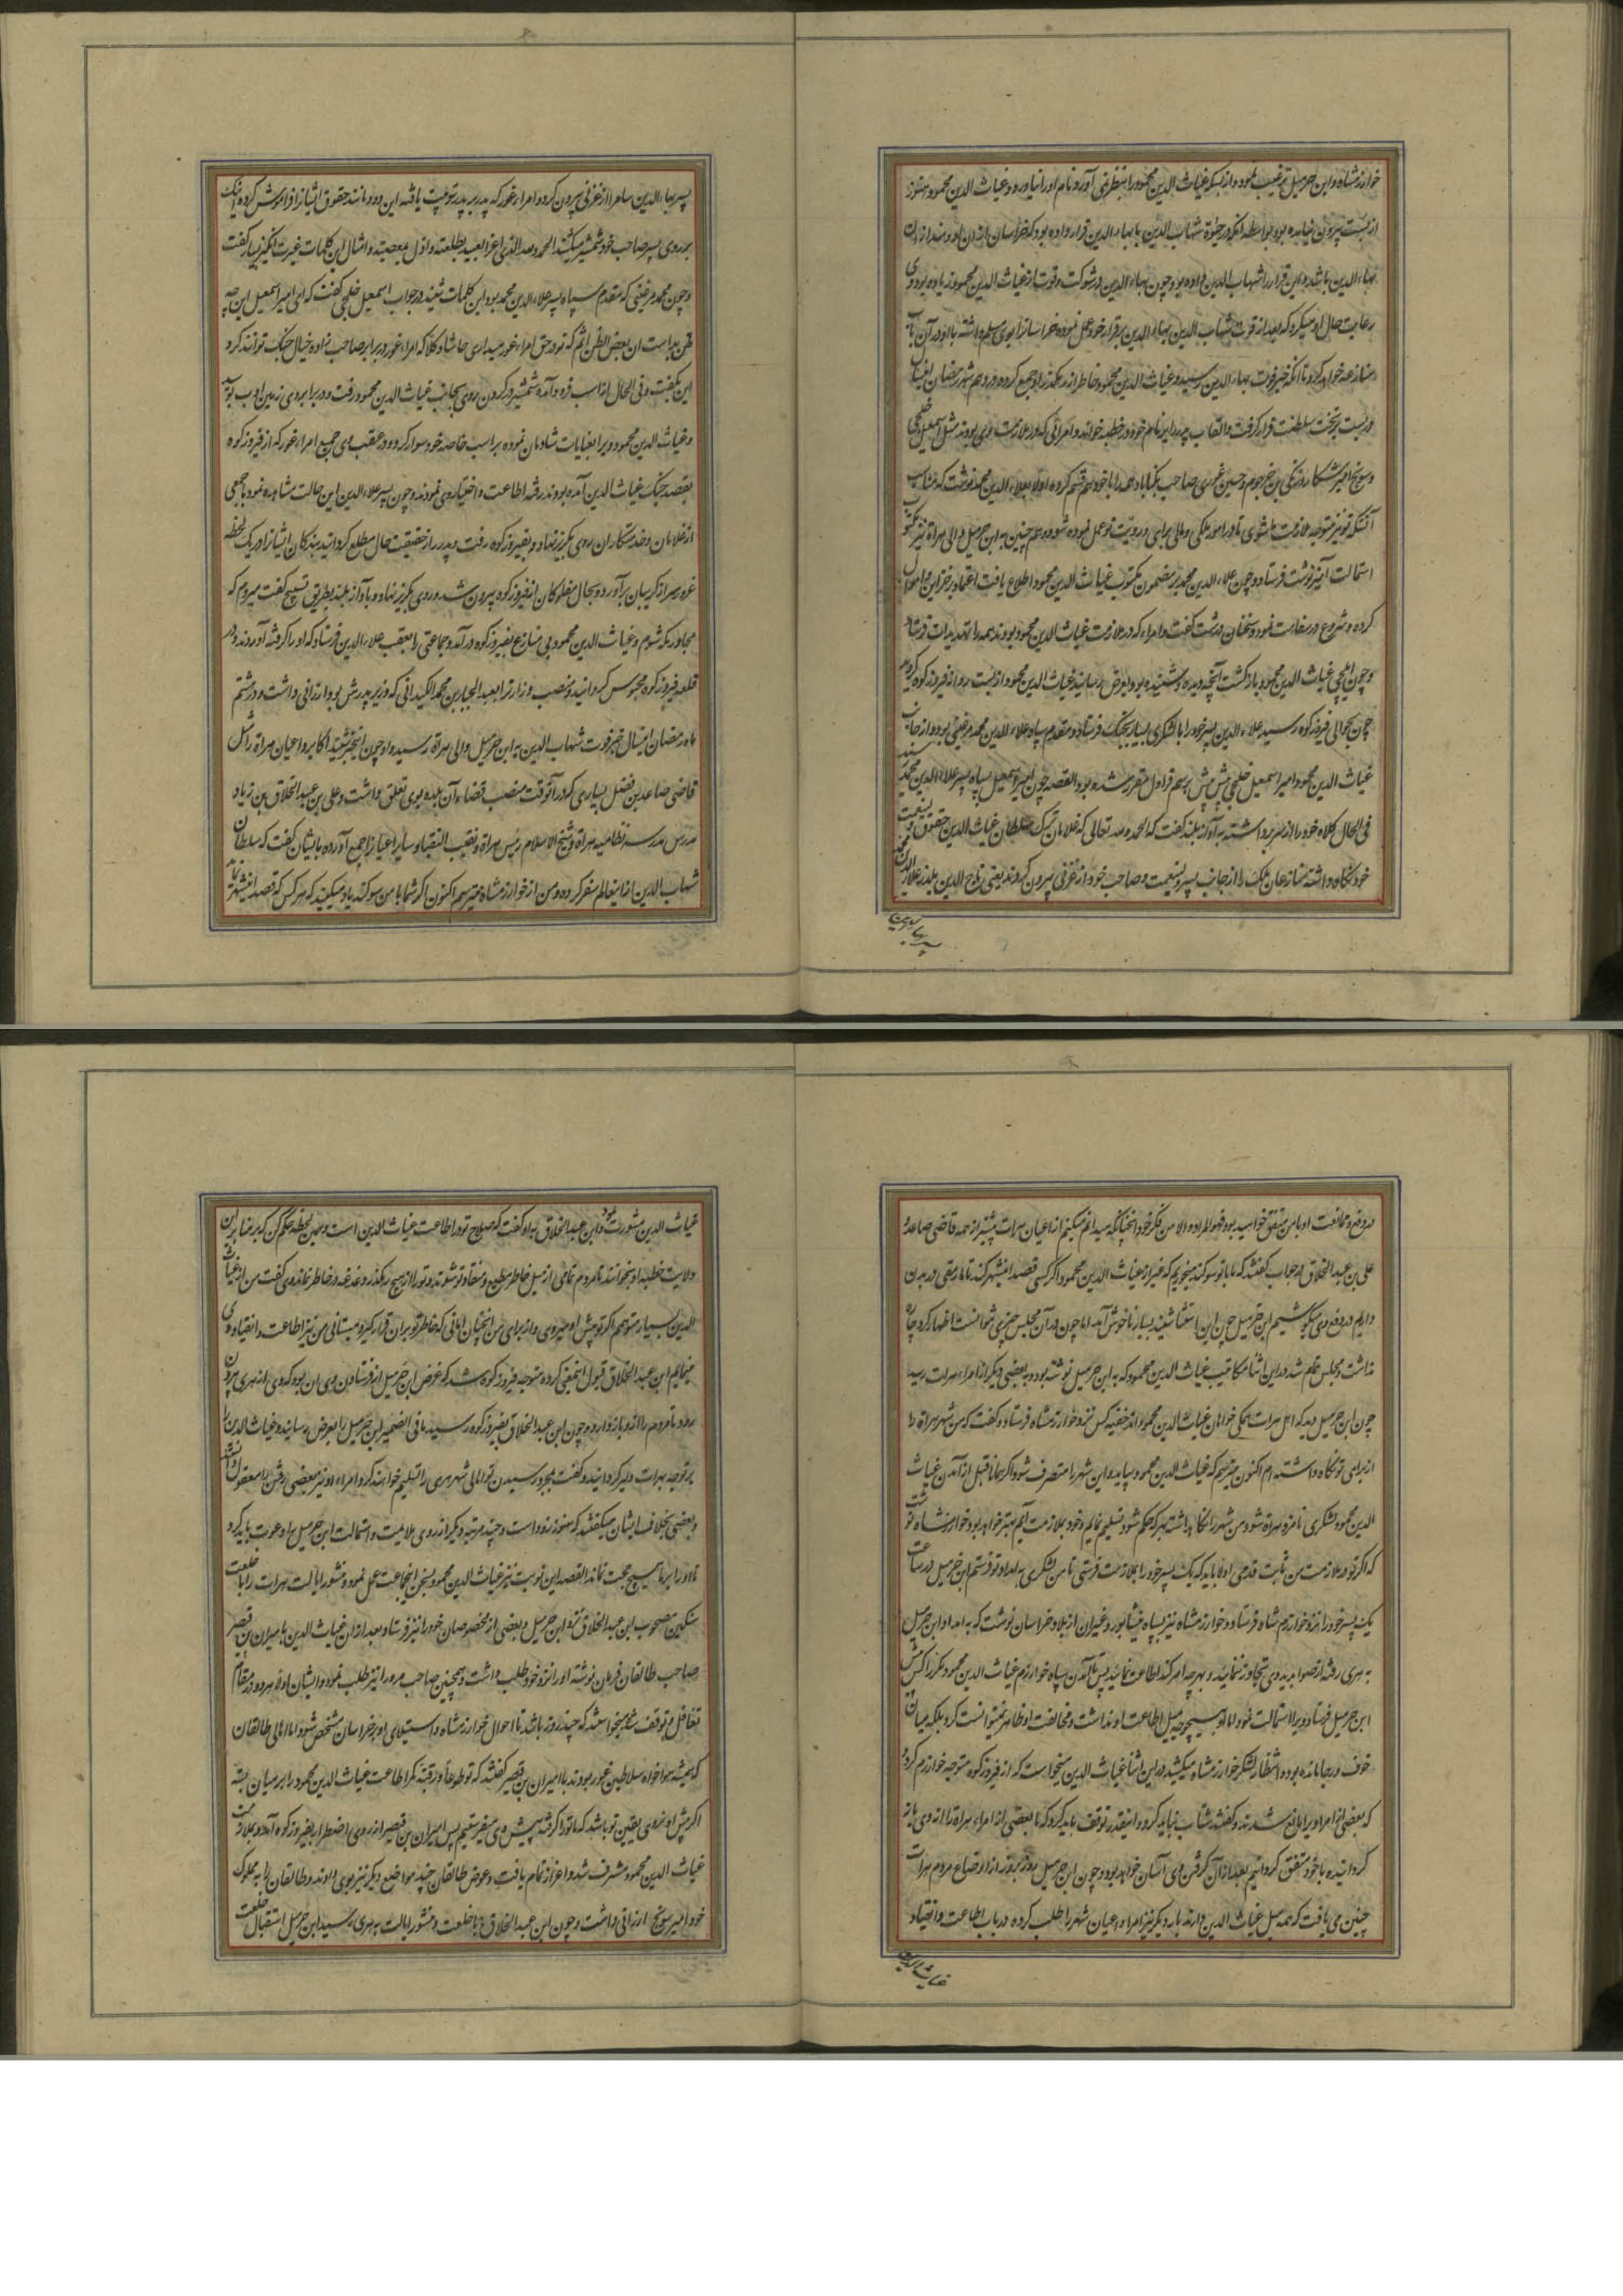 خوارزمشاه و ابن خرمیل ترغیب نمود و از بسکه غیاث الدین محمود را بنظر نمی آورد نام او را نیاورد و غیاث الدین محمود هنوز
از بست بیرون نیامده بود بواسطه آنکه در حیوة شهاب الدین با بهاء الدین قرار داده بود که خراسان
بهاء الدین باشد و این قرار را شهاب الدین داده بود چون بهاء الدین در شوکت و قوت از غیاث الدین محمود زیاده بود وی
رعایت حال او میکرد که بعد از فوت شهاب الدین بهاء الدین برقرار خود عمل نموده خراسانرا بوی مسلم داشته با او در آن باب
منازعه نخواهد کرد تا آنکه خبر فوت بهاء الدین رسید و غیاث الدین محمود خاطر از رهکذر او جمع کرده در دهم شهر رمضان
در بست بر تخت سلطنت قرار گرفت و القاب پدر را بر نام خود در خطبه خواند و امرائی که در ملازمت وی بودند مثل اسمعیل خلجی
و سونج امیر شکار و زنگی بن خرجوم و حسین غوری صاحب تکناباد همه را با خود هم قسم کرده اولا بعلاء الدین محمد نوشت که مناسب
آنستکه تو نیز متوجه ملازمت ما شوی تا در امور ملکی و مالی برای و رویت تو عمل نموده شود و هم چنین به ابن خرمیل والی هراة نیز مکتوب
استمالت آمیز نوشت فرستاد و چون علاء الدین محمد بر مضمون مکتوب غیاث الدین محمود اطلاع یافت اعتماد بر خزاین و اموال
کرده شروع در سفاهت نمود و سخنان درشت گفت و امراء که در ملازمت غیاث الدین محمود بودند همه را تهدیدات فرستاد
و چون ایلچی غیاث الدین محمود بازگشت آنچه دیده و شنیده بود بعرض رسانید غیاث الدین محمود از بست روانه فیروزکوه گردید
چون بحوالی فیروزکوه رسید علاء الدین پسر خود را با لشکری بسیار بجنگ فرستاد و مقدم سپاه علاء الدین محمد مرغنی بود و از جانب
غیاث الدین محمود امیر اسمعیل خلجی پیش پیش برسم قراول مقرر شده بود القصه چون امیر اسمعیل بسپاه پسر علاء الدین محمد رسید
فی الحال کلاه خود را از سر برداشته به آواز بلند گفت که الحمد لله تعالی که غلامان ترک سلطان غیاث الدین حقوق ولینعمت
خود نگاه داشته منازعان ملک را از جانب پسر ولینعمت و صاحب خود از غزنی بیرون کردند یعنی تاج الدین یلدز علاء الدین محمد
پسر بهاء الدین
پسر بهاء الدین سام را از غزنی بیرون کرد و امراء غور که پدر بر پدر تربیت یافته این دودمانند حقوق ایشانرا فراموش کرده اینک
بر روی پسر صاحب خود شمشیر میکشند الحمد لله الذی اعز العبید بطاعته و اذل بمعصیته و امثال این کلمات غیرت انگیز بسیار گفت
و چون محمد مرغنی که مقدم سپاه پسر علاء الدین محمد بود این کلمات شنید در جواب اسمعیل خلجی گفت که ای امیر اسمعیل این چه
ظن بد است ان بعض الظن اثم که تو در حق امراء غور میداری حاشا و کلا که امراء غور در برابر صاحب زاده خیال جنگ توانند کرد
این بگفت و فی الحال از اسب فرود آمده شمشیر در گردن روی بجانب غیاث الدین محمود رفت و در برابر وی زمین ادب بوسید
و غیاث الدین محمود ویرا بعنایات شادمان نموده بر اسب خاصه خود سوار کرد و در عقب وی جمیع امراء غور که از فیروزکوه
بقصد جنگ غیاث الدین آمده بودند رفته اطاعت و اختیار وی نمودند و چون پسر علاء الدین این حالت مشاهده نمود با جمعی
از غلامان و خدمتکاران روی بگریز نهاد و بفیروزکوه رفت و پدر را از حقیقت حال مطلع گردانید بندگان ایشانرا در یک لحظه
غرور سر از گریبان برآورد و بحال مفلوکان از فیروزکوه بیرون شد و روی بگریز نهاد و بآواز بلند بطریق تسبیح گفت میروم که
مجاور مکه شوم و غیاث الدین محمود بی منازع بفیروزکوه درآمد و جماعتی را بعقب علاء الدین فرستاد که او را گرفته آوردند و در
قلعه فیروزکوه محبوس گردانید و منصب وزارترا بعبد الجبار بن محمد الکیدانی که وزیر پدرش بود ارزانی داشت و در هشتم
ماه رمضان امسال خبر فوت شهاب الدین به ابن خرمیل والی هراة رسید و او چون اینخبر شنید اکابر و اعیان هراة را مثل
قاضی صاعد بن فضل بساری که در آنوقت منصب قضاء آن بلده بوی تعلق داشت و علی بن عبد الخلاق بن زیاد
مدرس مدرسه نظامیه هراة و شیخ الاسلام رئیس هراة و نقیب النقبا و سایر اعیانرا جمع آورده بایشان گفت که سلطان
شهاب الدین از اینعالم سفر کرده و من از خوارزمشاه میترسم اکنون اگر شما با من سوگند یاد میکنید که هر کس که قصد اینشهر نماید
در دفع و ممانعت او با من متفق خواهید بود فهو المراد و الا من فکر خود آنچنانکه میدانم میکنم از اعیان هرات پیشتر از همه قاضی صاعد و
علی بن عبد الخلاق در جواب گفتند که ما با تو سوگند میخوریم که غیر از غیاث الدین محمود اگر کسی قصد اینشهر کند تا ما رمقی در بدن
داریم در دفع وی بکوشیم ابن خرمیل چون این استثنا شنید بسیار ناخوش آمد اما چون در آن مجلس چیزی نمی توانست اظهار کرد چاره
نداشت و مجلس تمام شد در این اثنا مکاتیب غیاث الدین محمود که به ابن خرمیل نوشته بود و به بعضی دیگر از امراء هرات رسید
چون ابن خرمیل دید که اهل هرات همگی خواهان غیاث الدین محمود اند خفیه کس نزد خوارزمشاه فرستاد و گفت که من شهر هراة را
از برای تو نگاه داشته ام اکنون میترسم که غیاث الدین محمود بیاید و این شهر را متصرف شود اگر همانا قبل از آمدن غیاث
الدین محمود لشکری نامزد هراة شود من شهر را نگاهداشته بهر که حکم شود تسلیم نمایم و خود بملازمت آیم بهتر خواهد بود خوارزمشاه نوشت
که اگر تو در ملازمت من ثابت قدمی اولا باید که یک پسر خود را بملازمت فرستی تا من لشکری به امداد تو فرستم ابن خرمیل در ساعت
یک پسر خود را نزد خوارزم شاه فرستاد و خوارزمشاه نیز بسپاه نیشابور و غیر آن از بلاد خراسان نوشت که به امداد ابن خرمیل
به هری رفته از صوابدید وی تجاوز ننمایند و بهر چه امر کند اطاعت نمایند پس تا آمدن سپاه خوارزم غیاث الدین محمود مکرر کس پیش
ابن خرمیل فرستاد و ویرا استمالت نمود اما او بهیچوجه میل اطاعت او نداشت و مخالفت او ظاهر نمیتوانست کرد بلکه میان
خوف و رجا مانده بود و انتظار لشکر خوارزمشاه میکشید در این اثنا غیاث الدین میخواست که از فیروزکوه متوجه خوارزم گردد
که بعضی از امرا ویرا مانع شدند و گفتند شتاب نباید کرد و اینقدر توقف باید کرد که ما بعضی از امراء هراة را از وی باز
گردانیده با خود متفق گردانیم بعد از آن گرفتن وی آسان خواهد بود و چون ابن خرمیل روز بروز از اوضاع مردم هرات
چنین می یافت که همه میل غیاث الدین دارند بار دیگر نیز امرا و اعیان شهر را طلب کرده در باب اطاعت و انقیاد
غیاث الدین
غیاث الدین مشورت نمود و ابن عبد الخلاق به او گفت که صلاح تو در اطاعت غیاث الدین است و همین لحظه حکم کن که بر منابر این
ولایت خطبه او بخوانند تا مردم تمامی از میل خاطر مطیع و منقاد تو شوند و تو را از هیچ رهکذر دغدغه در خاطر نماند وی گفت من از غیاث
الدین بسیار متوهم اگر تو پیش او میروی و از برای من آنچنان امانی که خاطر تو بر آن قرار گیرد میستانی من نیز اطاعت و انقیاد وی
مینمایم ابن عبد الخلاق قبول اینمعنی کرده متوجه فیروزکوه شد که غرض ابن خرمیل از فرستادن وی آن بود که وی از هری بیرون
رود تا مردم را از او باز دارد و چون ابن عبد الخلاق بفیروزکوه رسید ما فی الضمیر ابن خرمیل را بعرض رسانید و غیاث الدین را
بر توجه بهرات دلیر گردانید و گفت بمجرد رسیدن تو اهالی شهر هری را تسلیم خواهند کرد و امراء او نیز بعضی رفتن را معقول دانستند
و بعضی بخلاف ایشان میگفتند که هنوز زود است و چند مرتبه دیگر از روی ملایمت و استمالت ابن خرمیل را دعوت باید کرد
تا او را بر ما هیچ حجت نماند القصه این نوبت نیز غیاث الدین محمود بسخن اینجماعت عمل نمود و منشور ایالت هرات را با خلعت
سنگین مصحوب ابن عبد الخلاق نزد ابن خرمیل و بعضی از مخصوصان خود را نیز فرستاد و بعد از آن غیاث الدین با میران بن قیصر
صاحب طالقان فرمان نوشته او را نزد خود طلب داشت و همچنین صاحب مرو را نیز طلب نمود و ایشان اولا هر دو در مقام
تغافل و توقف شده میخواستند که چند روز باشد تا احوال خوارزمشاه و استیلای او بر خراسان مشخص شود اما اهالی طالقان
که همیشه هواخواه سلاطین غور بودند با امیران بن قیصر گفتند که تو طوعا و رقبة کمر اطاعت غیاث الدین محمود را بر میان بسته
اگر پیش او نروی یقین تو باشد که ما تو را گرفته پیش وی میفرستیم پس امیران بن قیصر از روی اضطرار بفیروزکوه آمد و بملازمت
غیاث الدین محمود مشرف شد و اعزاز تمام یافت و عوض طالقان چند مواضع دیگر نیز بوی دادند و طالقان را به مملوک
خود امیر سونج ارزانی داشت و چون ابن عبد الخلاق با خلعت و منشور ایالت به هری رسید ابن خرمیل استقبال خلعت